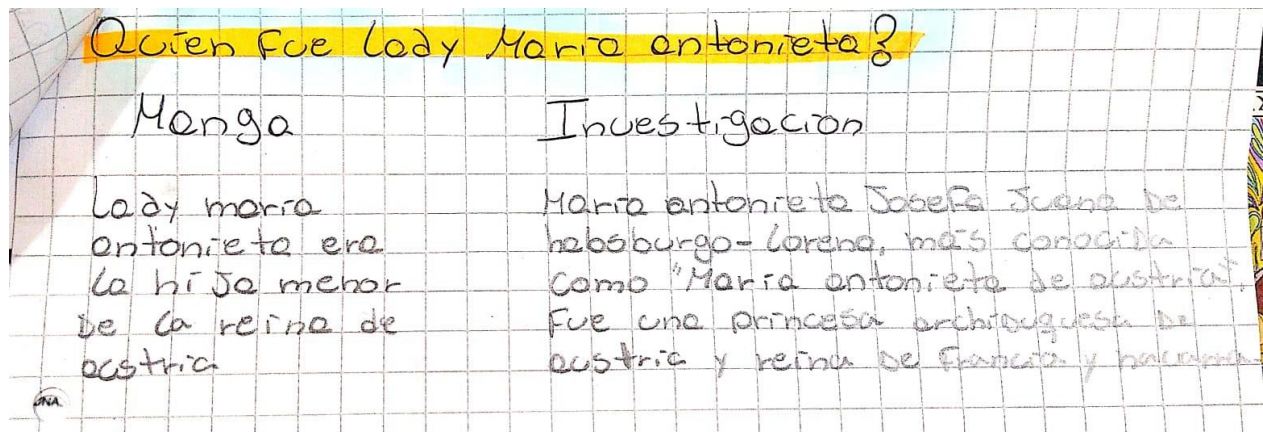 Quien fue lady Maria antonieta?
Manga
Investigacion
lady maria
antonieta era
la hija menor
de la reina de
austria
Maria antonieta Josefa Juana de
habsburgo-lorena, más conocida
como "Maria antonieta de austria".
Fue una princesa archiduquesa de
austria y reina de Francia y navarra
JNA